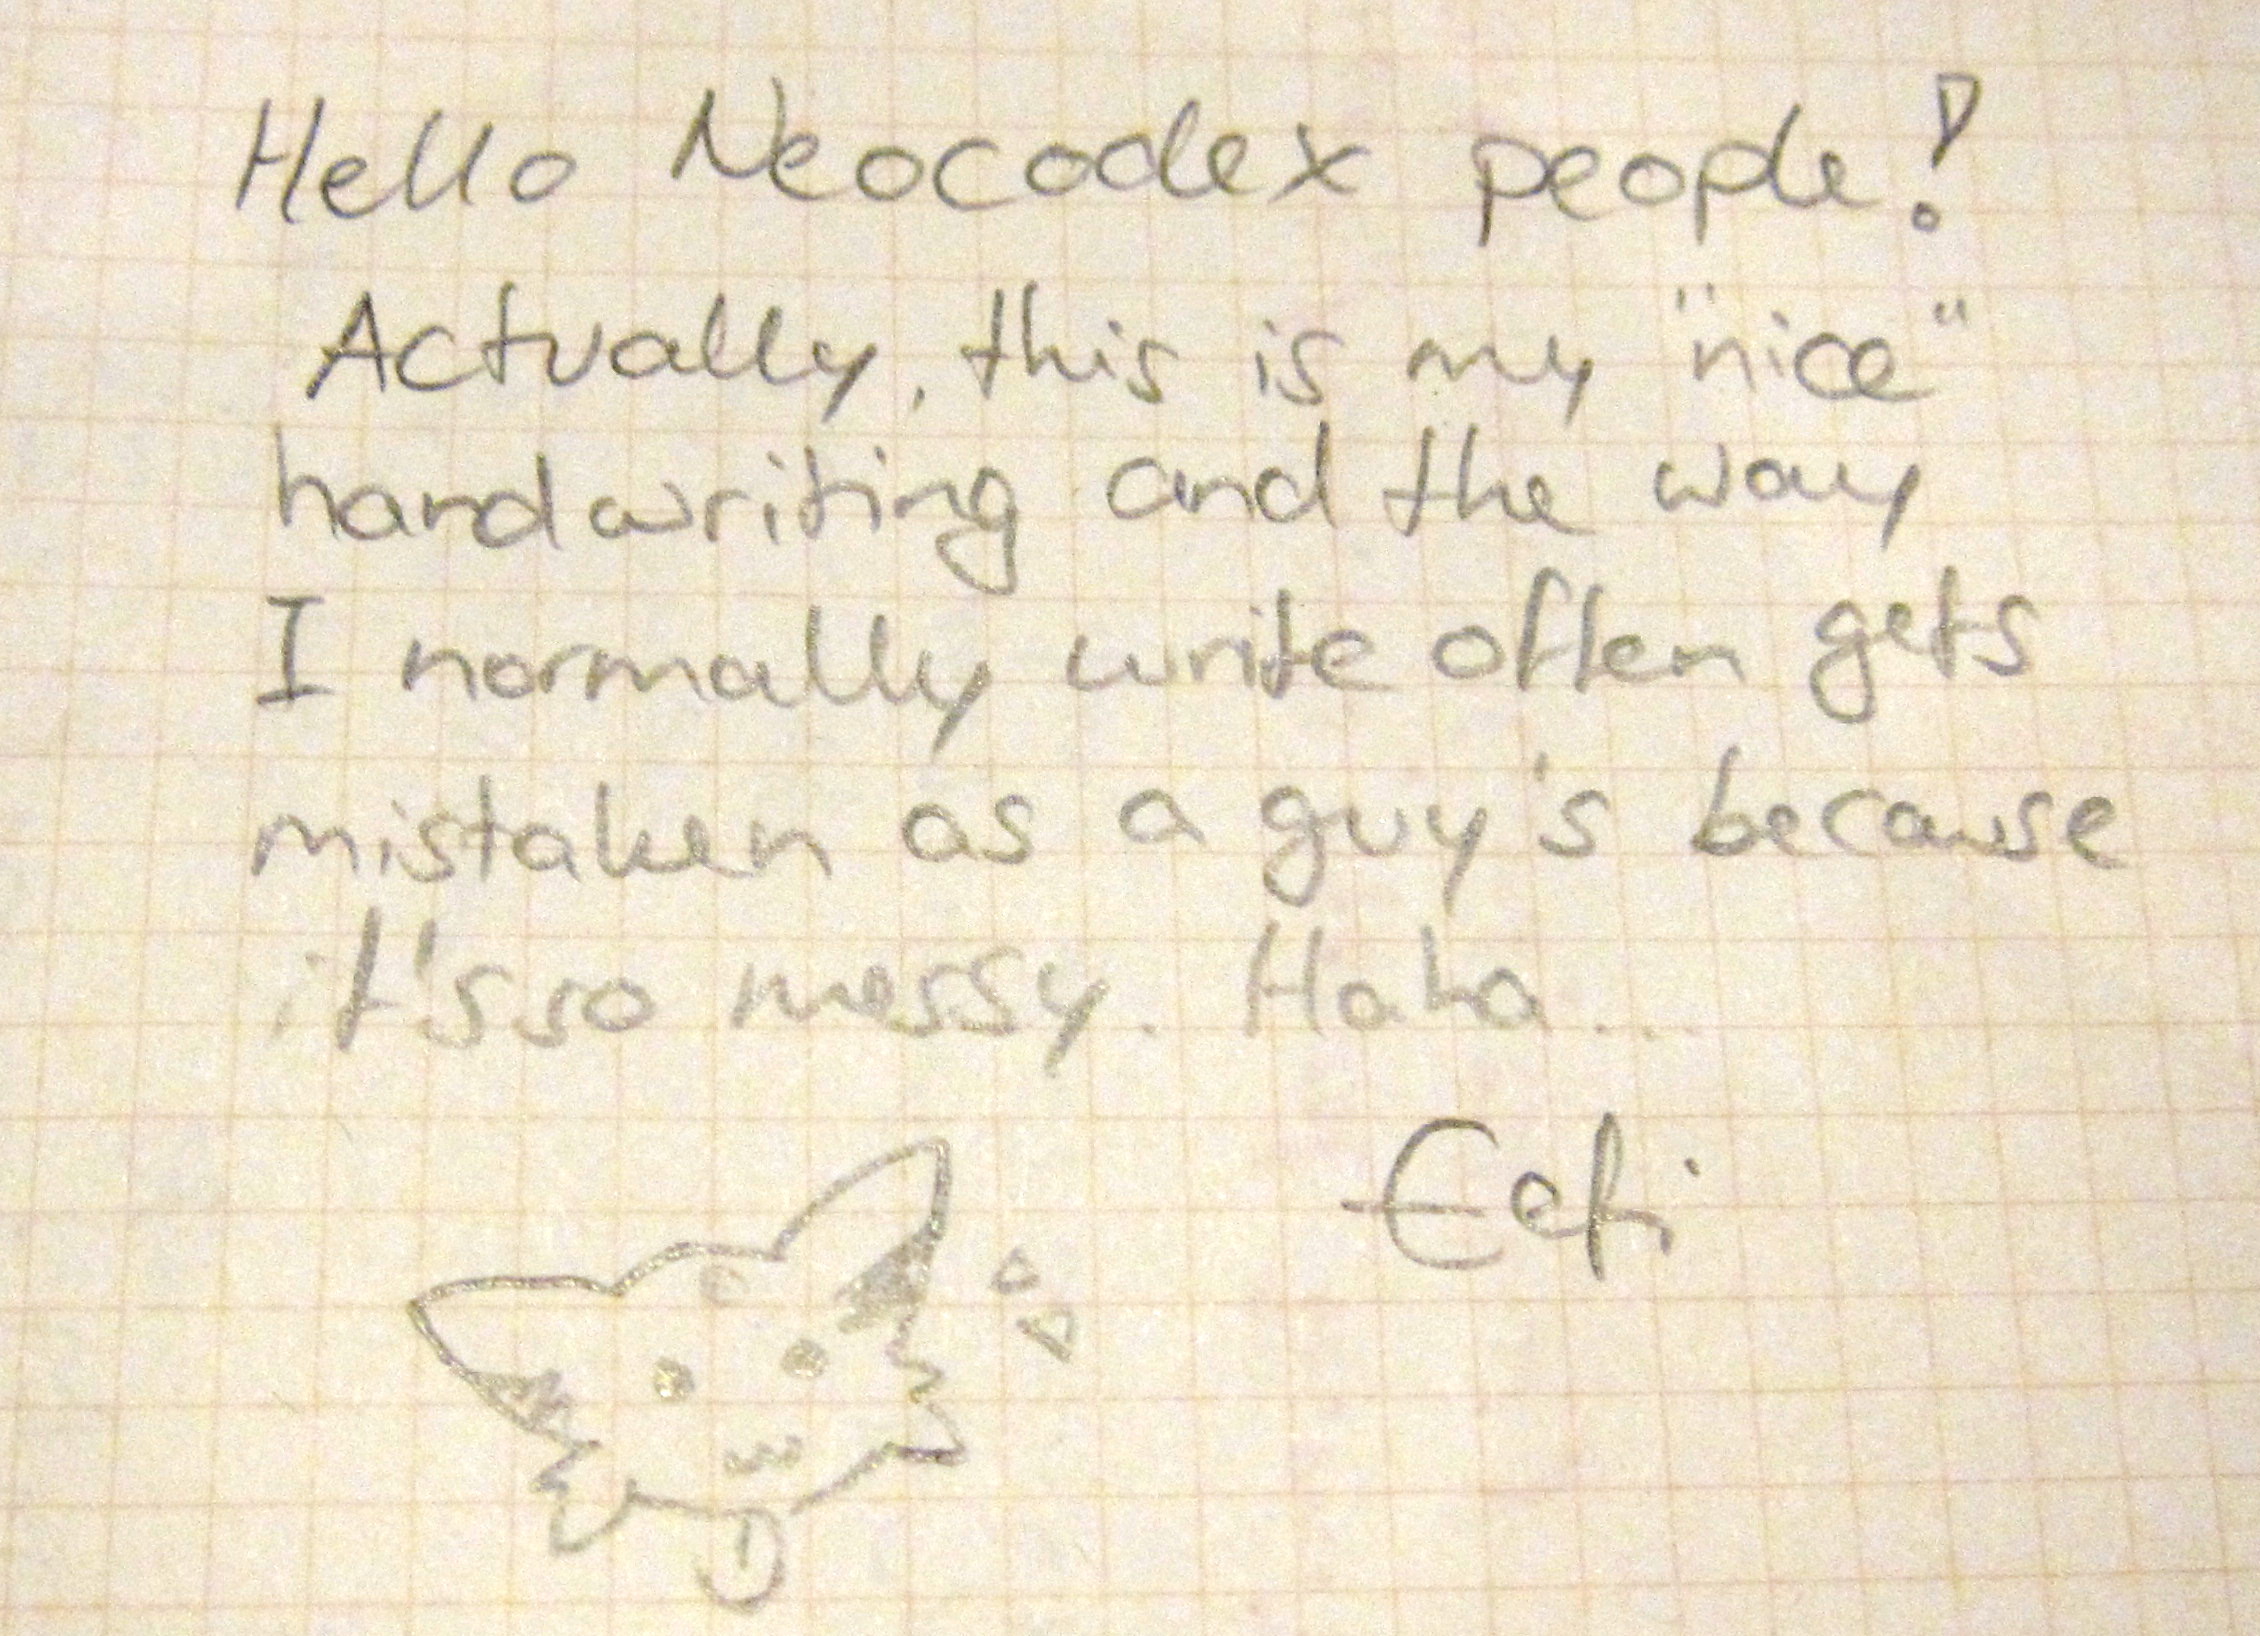 Hello Neocodex people!
Actually, this is my "nice"
handwriting and the way
I normally write often gets
mistaken as a guy's because
it's so messy. Haha...
Eefi